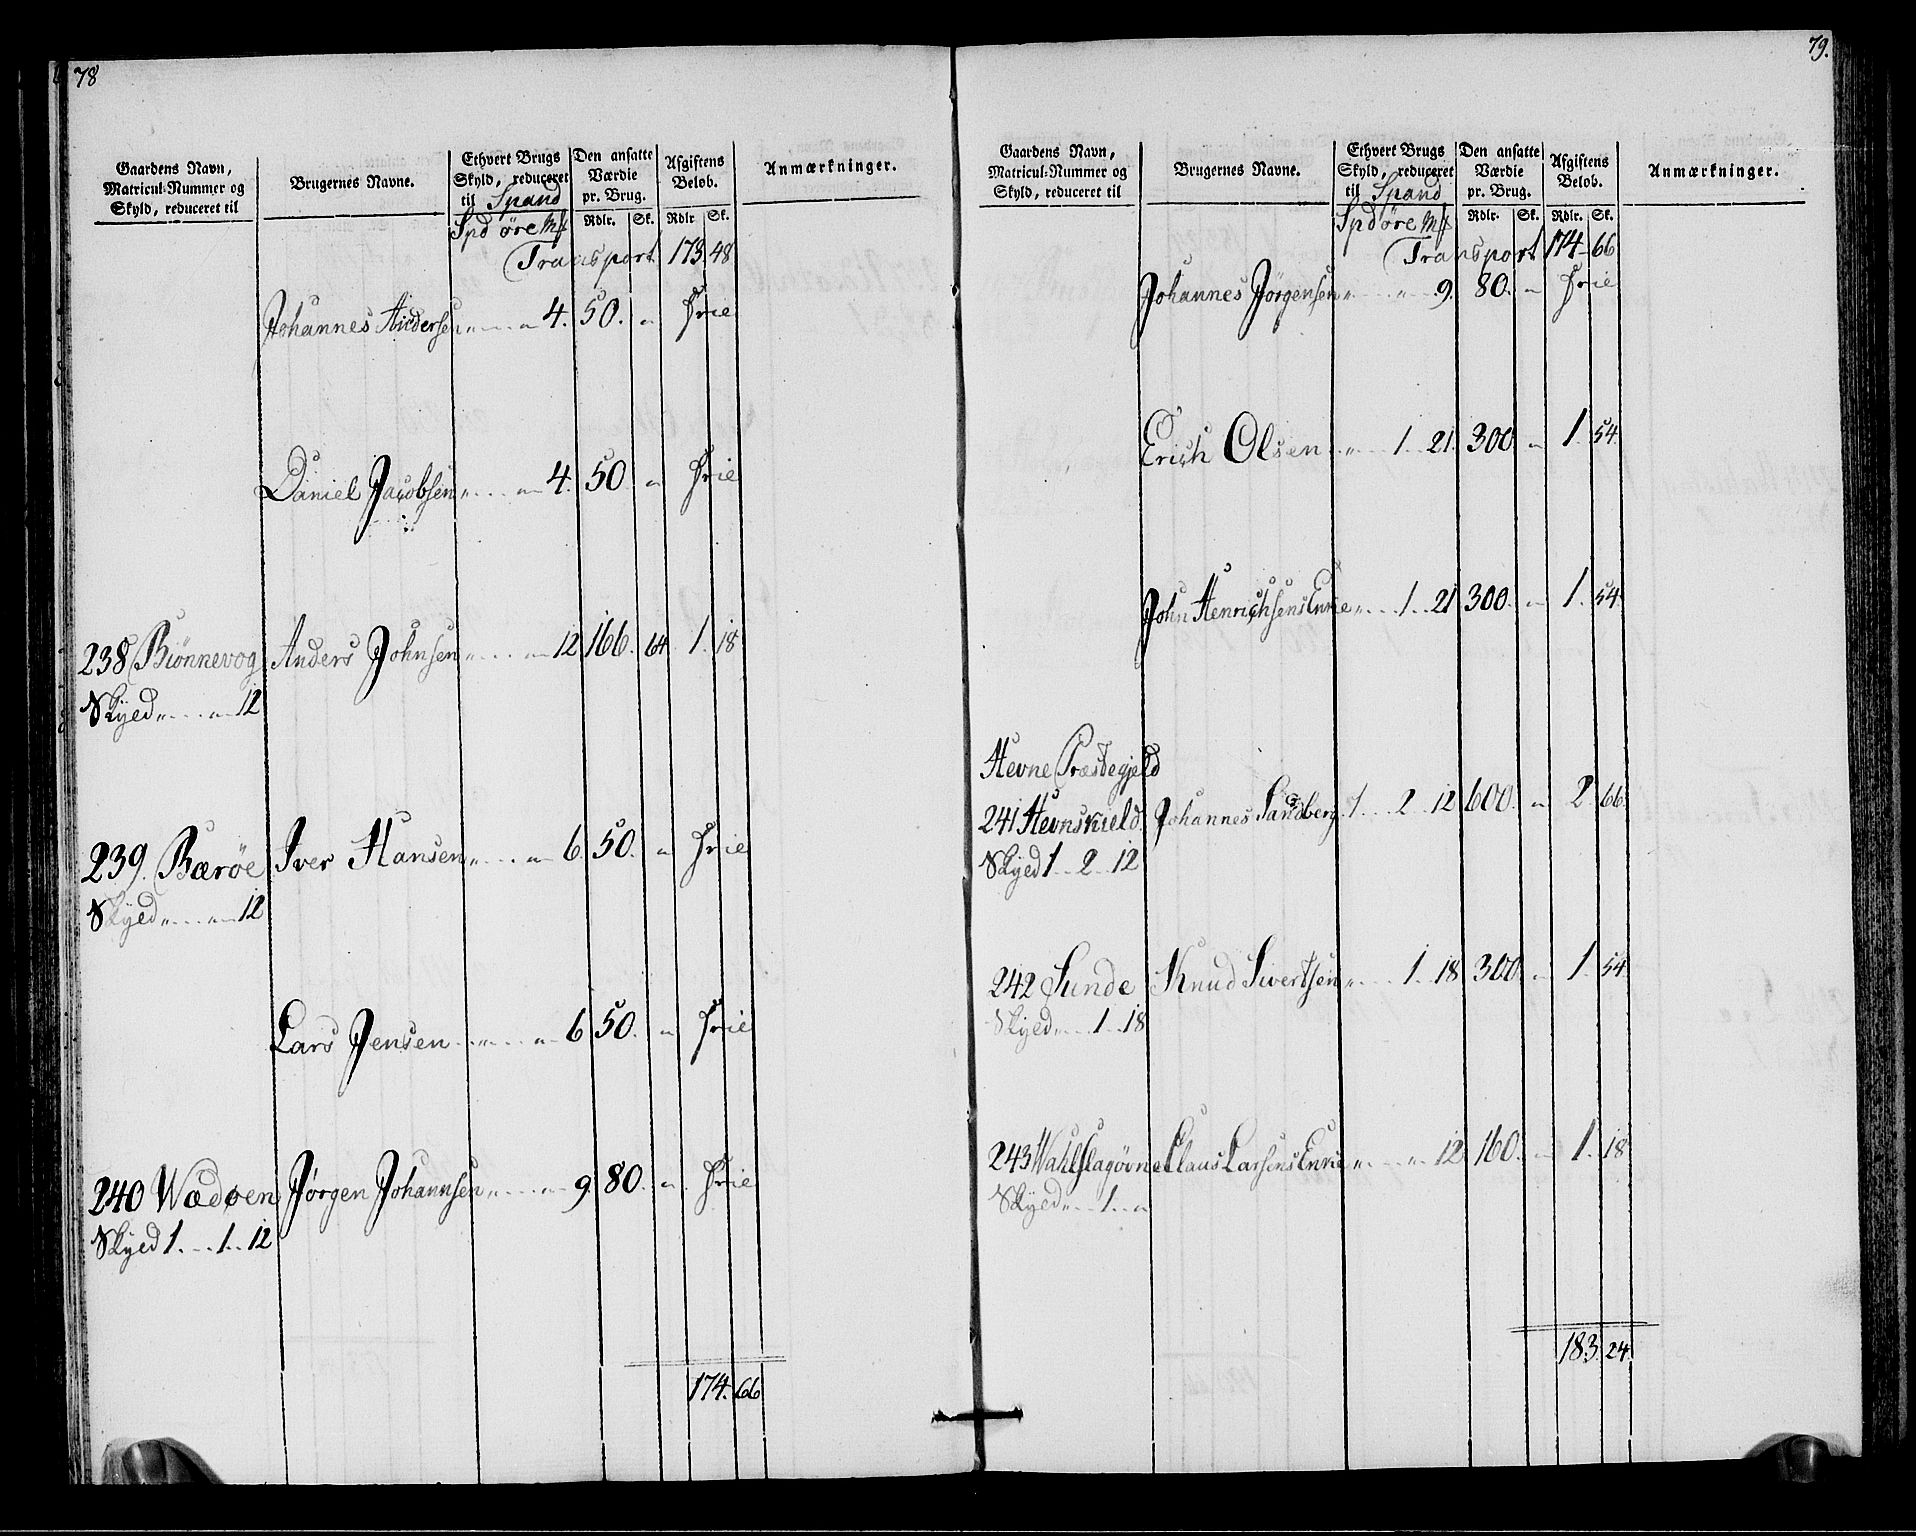 78
Gaardens Navn, Matricul-Nummer og Skyld, reduceret til
Brugernes Navne.
Ethvert Brugs Skyld, reduceret til Spand
Spd øre Mk
Den ansatte Værdie pr. Brug.
Rdlr. Sk.
Afgiftens Beløb.
Rdlr Sk.
Anmærkninger.
Transport 173. 48
Johannes Andersen „ „ 4. 50. „ Frie
Daniel Jacobsen „ „ 4. 50 „ Frie
238 Biønnevog Anders Johnsen „ „ 12 166. 64 1. 18
Skyld „ „ 12
239. Bærøe Iver Hansen „ „ 6. 50. „ Frie
Skyld „ „ 12
Lars Jensen „ „ 6 50. „ Frie
240 Wædøen Jørgen Johannsen „ „ 9. 80. „ Frie
Skyld 1. 1. 12
174. 66
79.
Gaardens Navn, Matricul-Nummer og Skyld, reduceret til
Brugernes Navne.
Ethvert Brugs Skyld, reduceret til Spand
Spd øre Mk
Den ansatte Værdie pr. Brug.
Rdlr. Sk.
Afgiftens Beløb.
Rdlr. Sk.
Anmærkninger.
Transport 174 66
Johannes Jørgensen „ „ 9. 80. „ Frie
Erich Olsen „ 1 21. 300. „ 1. 54.
John Henrichsens Enke „ 1 21 300. „ 1. 54
Hevne Præstegjeld
241 Hevnskield Johannes Sandberg 1 2 12 600. „ 2. 66.
Skyld 1 2 12
242 Sunde Knud Sivertsen „ 1. 18 300. „ 1. 54
Skyld „ 1 18
243 Wahlslagøvne Claus Larsens Enke „ „ 12 160. „ 1. 18
Skyld „ 1 „
183. 24.